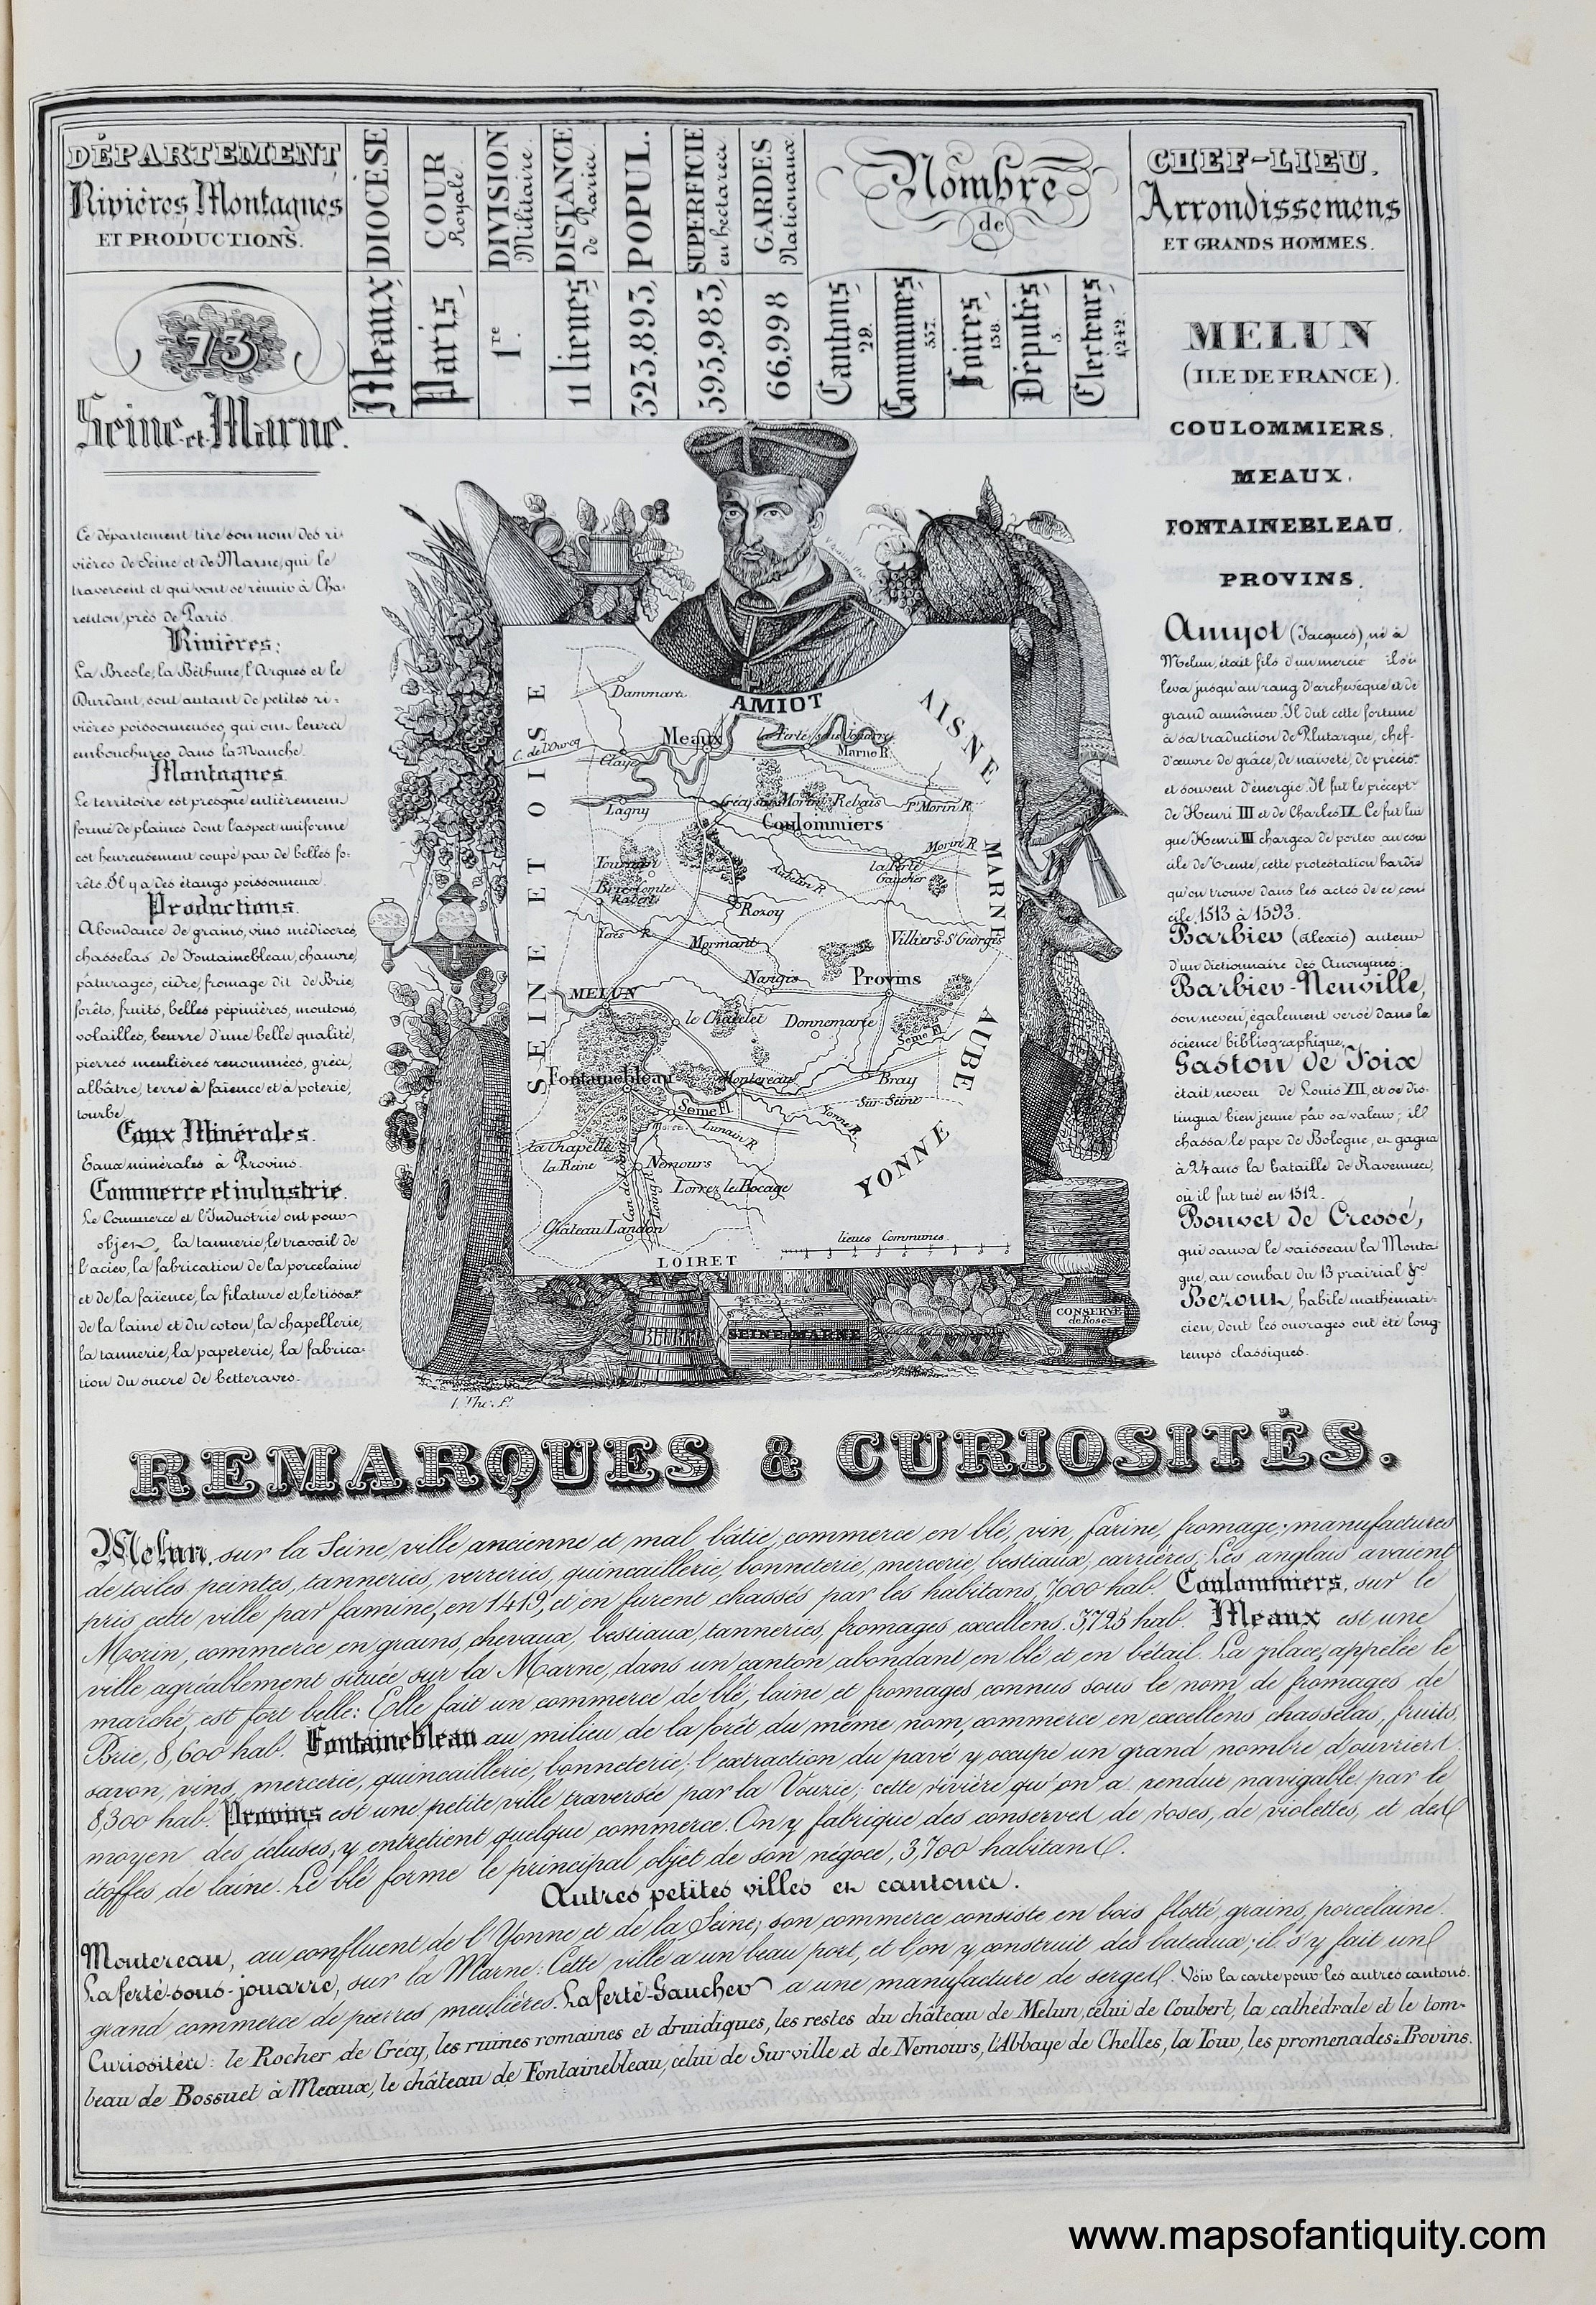 DÉPARTEMENT
Rivières, Montagnes
ET PRODUCTIONS.
DIOCÈSE
Meaux
COUR
Royale
Paris
DIVISION
Militaire
1re
DISTANCE
de Paris
11 lieues
POPUL.
323,893
SUPERFICIE
en hectares
595,983
GARDES
Nationaux
66,998
Nombre
de
Cantons
29.
Communes
557.
Foires
138.
Députés
5.
Electeurs
1242.
CHEF-LIEU.
Arrondissemens
ET GRANDS HOMMES.
73
Seine et Marne.
Ce département tire son nom des ri-
vières de Seine et de Marne, qui le
traversent et qui vont se réunir à Cha-
renton, près de Paris.
Rivières:
La Bresle, la Béthune, l'Arques et le
Durdant, sont autant de petites ri-
vières poissonneuses, qui ont leurs
embouchures dans la Manche.
Montagnes
Le territoire est presque entièrement
formé de plaines dont l'aspect uniforme
est heureusement coupé par de belles fo-
rêts. Il y a des étangs poissonneux.
Productions.
Abondance de grains, vins médiocres,
chasselas de Fontainebleau, chanvre,
pâturages, cidre, fromage dit de Brie,
forêts, fruits, belles pépinières, moutons,
volailles, beurre d'une belle qualité,
pierres meulières renommées, grés,
albâtre, terre à faïence et à poterie,
tourbe.
Eaux Minérales.
Eaux minérales à Provins.
Commerce et industrie.
Le Commerce et l'Industrie ont pour
objet, la tannerie, le travail de
l'acier, la fabrication de la porcelaine
et de la faïence, la filature et le tissage
de la laine et du coton, la chapellerie,
la tannerie, la papeterie, la fabrica-
tion du sucre de betteraves.
MELUN
(ILE DE FRANCE).
COULOMMIERS.
MEAUX.
FONTAINEBLEAU.
PROVINS.
Amyot (Jacques), né à
Melun, était fils d'un mercier il s'é-
leva jusqu'au rang d'archevêque et de
grand aumônier. Il dut cette fortune
à sa traduction de Plutarque, chef-
d'œuvre de grâce, de naïveté, de précison
et souvent d'énergie. Il fut le précептr
de Henri III et de Charles IX. Ce fut lui
que Henri III chargea de porter au con
cile de Trente, cette protestation hardie
qu'on trouve dans les actes de ce con
cile, 1513 à 1593.
Barbier (Alexis) auteur
d'un dictionnaire des Anonymes.
Barbier-Neuville,
son neveu, également versé dans la
science bibliographique.
Gaston de Foix
était neveu de Louis XII, et se dis-
tingua bien jeune par sa valeur; il
chassa le pape de Bologne, et gagna
à 24 ans la bataille de Ravennes,
où il fut tué en 1512.
Bouvet de Cressé,
qui sauva le vaisseau la Monta
gne, au combat du 13 prairial &c
Bezout, habile mathémati-
cien, dont les ouvrages ont été long-
temps classiques.
AMIOT
SEINE ET OISE
AISNE
MARNE
AUBE
YONNE
LOIRET
Dammart.
C. de l'Ourcq
Meaux
la Ferté sous Jouarre
Marne R.
Claye
Lagny
Crécy sur Morin
Rebais
Pt Morin R.
Coulommiers
Morin R.
la Ferté
Gaucher
Tournan
Brie Comte
Robert
Aubetin R.
Rozoy
Yeres R.
Mormant
Villiers St Georges
Nangis
Provins
MELUN
le Chatelet
Donnemarie
Seine Fl
Fontainebleau
Montereau
Bray
Sur-Seine
Seine Fl
Moret
Lunain R
Yonne R
la Chapelle
la Reine
Nemours
Lorrez le Bocage
Loing R.
Château Landon
lieues Communes
BEURRE
SEINE et MARNE
CONSERVE
de Rose
REMARQUES & CURIOSITÉS.
Melun, sur la Seine, ville ancienne et mal bâtie; commerce en blé, vin, farine, fromage; manufactures
de toiles peintes, tanneries, verreries, quincaillerie, bonneterie, mercerie, bestiaux, carrières. Les anglais avaient
pris cette ville par famine, en 1419, et en furent chassés par les habitans, 7000 hab. Coulommiers, sur le
Morin, commerce en grains, chevaux, bestiaux, tanneries, fromages excellens. 3,725 hab. Meaux est une
ville agréablement située sur la Marne, dans un canton abondant en blé et en bétail. La place, appelée le
marché, est fort belle: Elle fait un commerce de blé, laine et fromages connus sous le nom de fromages de
Brie, 8,600 hab. Fontainebleau au milieu de la forêt du même nom, commerce en excellens chasselas, fruits,
savon, vins, mercerie, quincaillerie, bonneterie; l'extraction du pavé y occupe un grand nombre d'ouvriers.
8,300 hab. Provins est une petite ville traversée par la Vouzie; cette rivière qu'on a rendue navigable par le
moyen des écluses, y entretient quelque commerce. On y fabrique des conserves de roses, de violettes, et des
étoffes de laine. Le blé forme le principal objet de son négoce, 3,700 habitans.
Autres petites villes et cantons.
Montereau, au confluent de l'Yonne et de la Seine; son commerce consiste en bois flotté, grains, porcelaine.
Laferté-sous-jouarre, sur la Marne: Cette ville a un beau port, et l'on y construit des bateaux; il s'y fait un
grand commerce de pierres meulières. Laferté-Gaucher a une manufacture de serges. Voir la carte pour les autres cantons.
Curiosités: le Rocher de Crécy, les ruines romaines et druidiques, les restes du château de Melun, celui de Coubert, la cathédrale et le tom-
beau de Bossuet à Meaux, le château de Fontainebleau, celui de Surville et de Nemours, l'Abbaye de Chelles, la Tour, les promenades à Provins.
www.mapsofantiquity.com